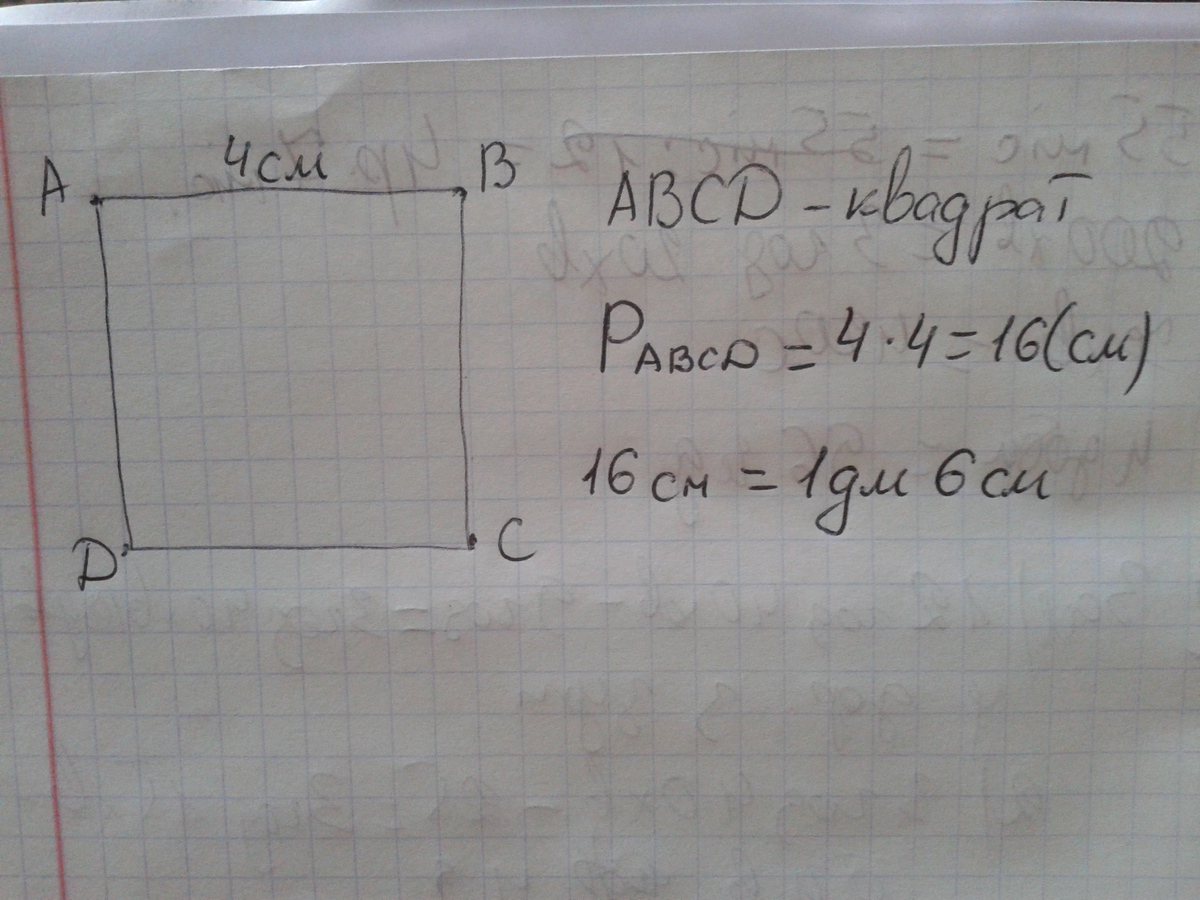 4см
A
B
ABCD - квадрат
PABCD = 4·4=16(см)
16 см = 1дм 6 см
D
C